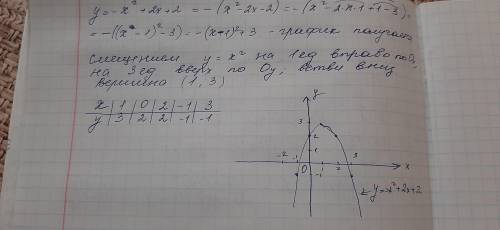 y=-x²+2x+2 = -(x²-2x-2) = -(x²-2·x·1+1-3) =
= -((x-1)²-3) = -(x-1)²+3 - график получаем
смещением y = x² на 1 ед вправо по Ox,
на 3 ед вверх по Oy, ветви вниз
вершина (1, 3)
x | 1 | 0 | 2 | -1 | 3
y | 3 | 2 | 2 | -1 | -1
y
3
2
1
-2 -1 0 1 3 x
-1
y=-x²+2x+2